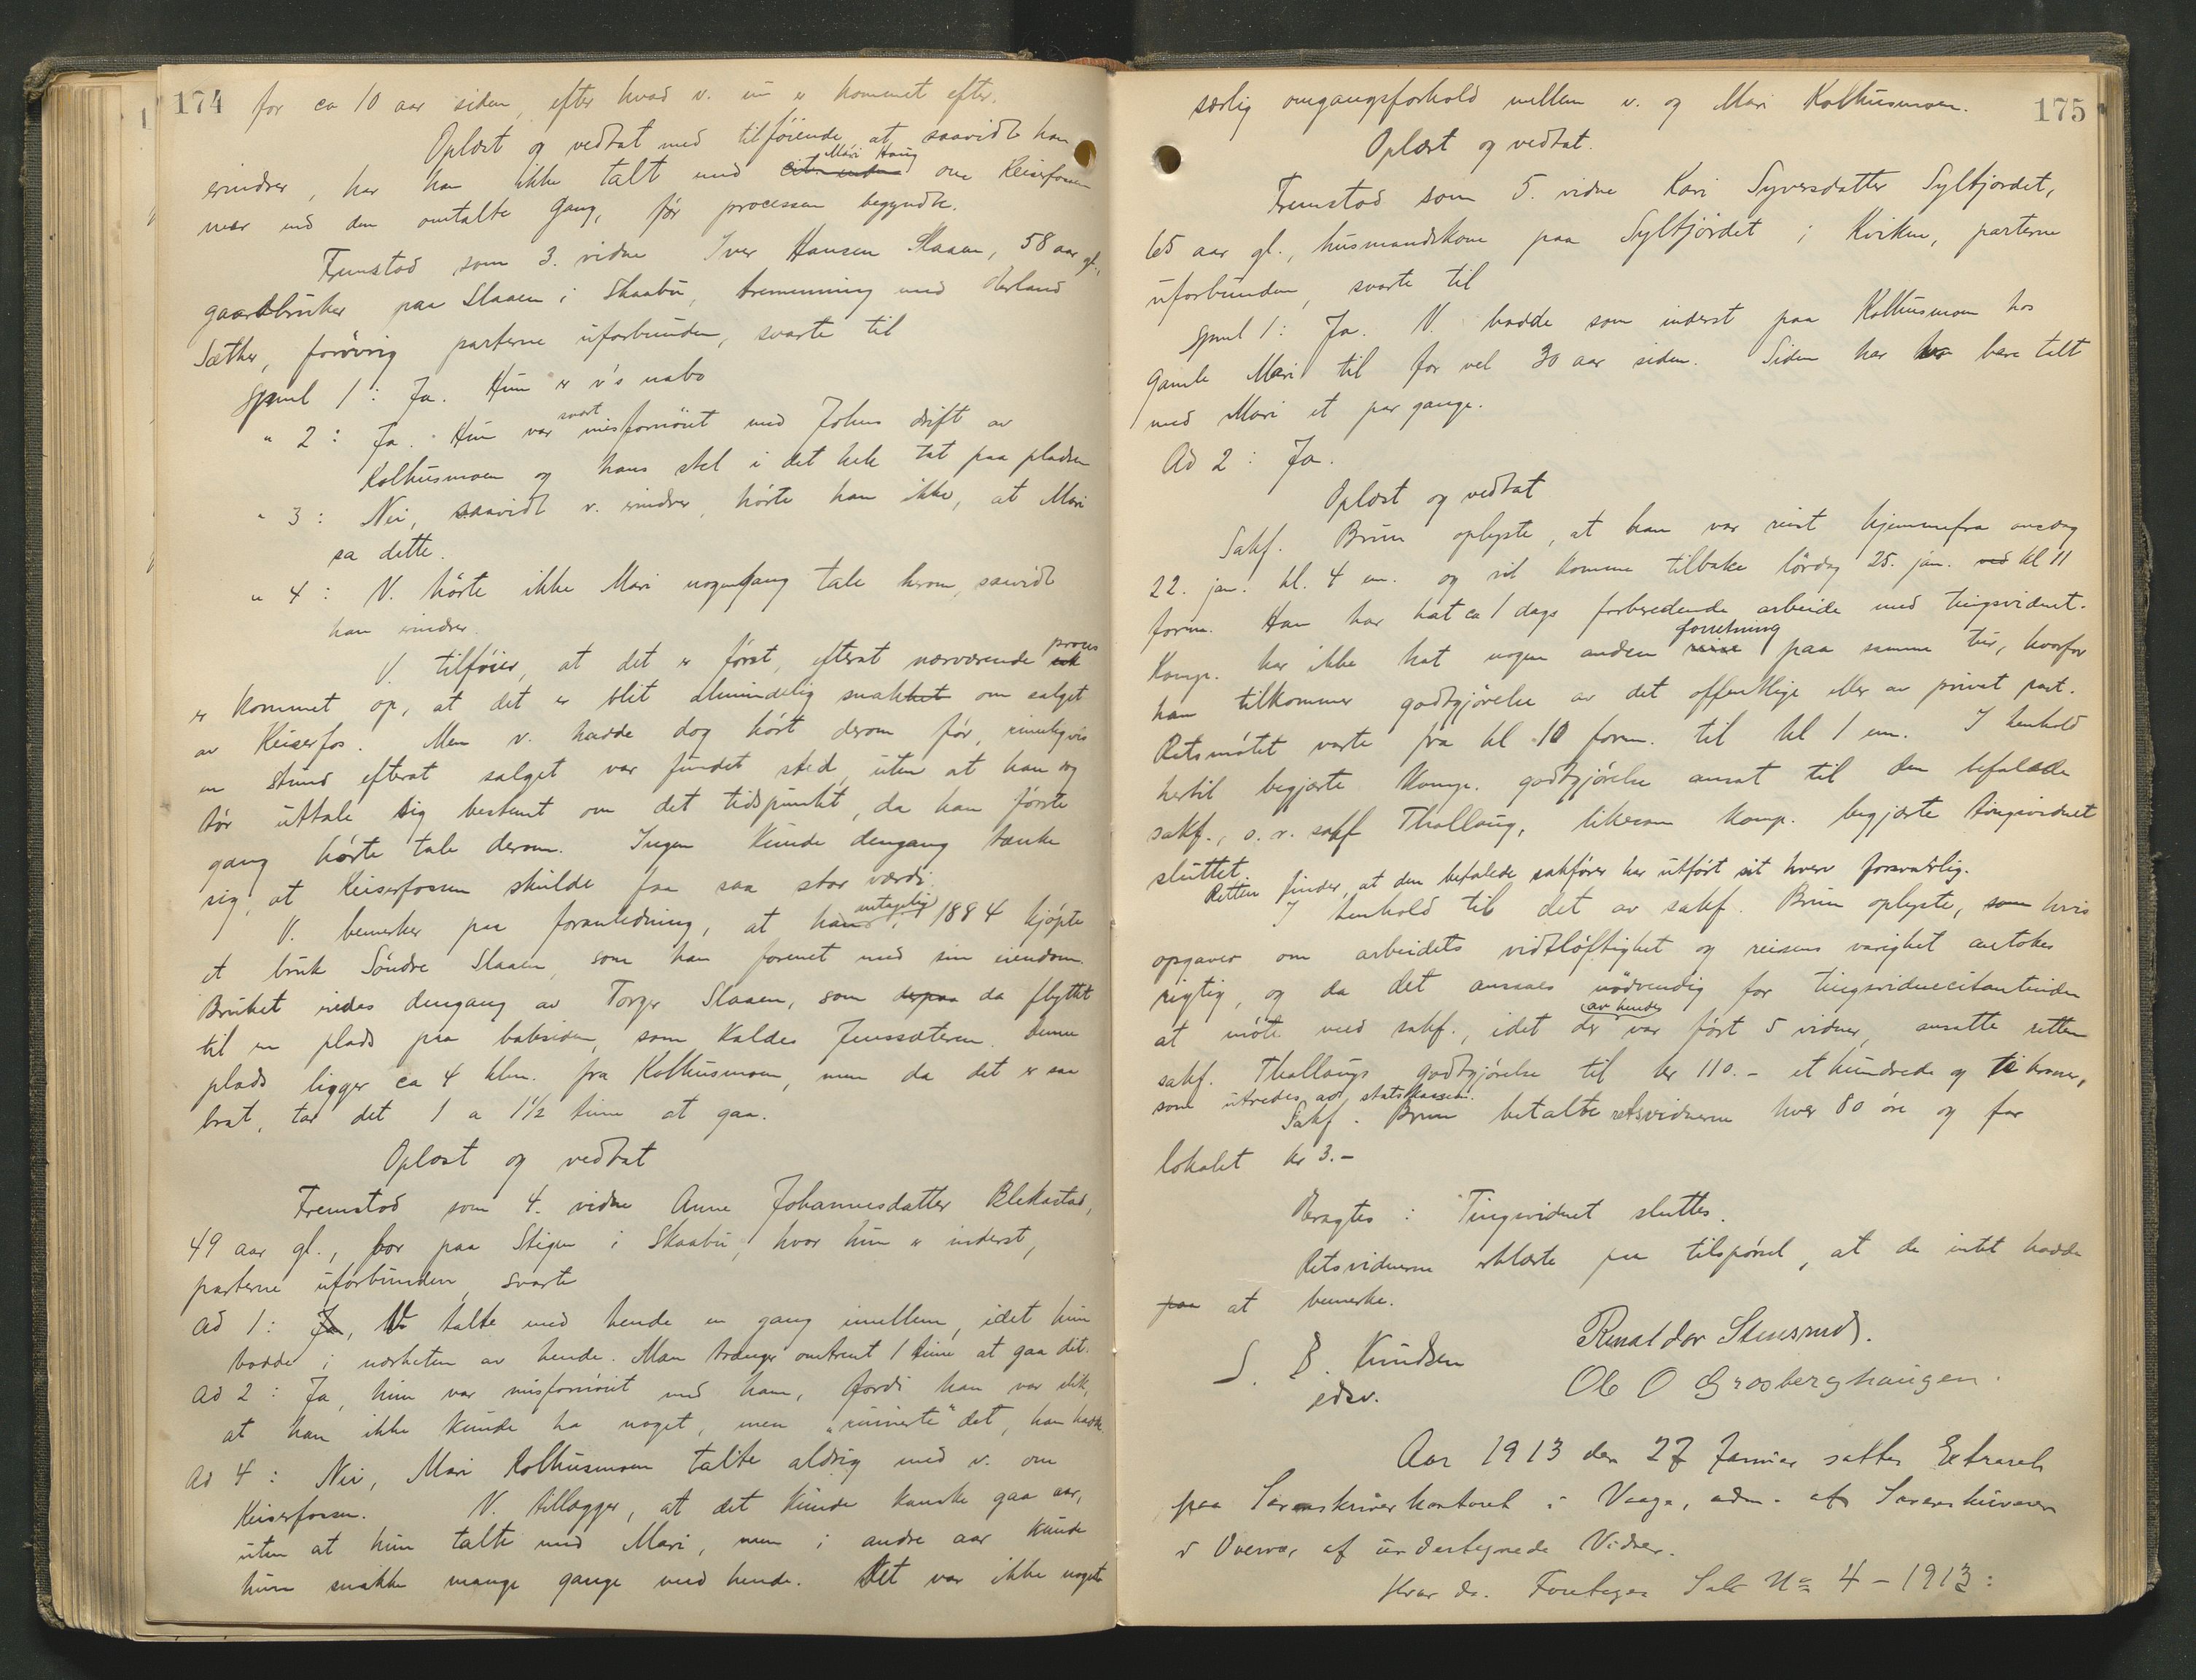 174
for ca 10 aar siden, efter hvad v. nu er kommet efter.
Oplæst og vedtat med tilføiende, at saavidt han
erindrer, har han ikke talt med citantinden Mari Haug om Keiserfossen
mer end den omtalte gang, før processen begyndte.
Fremstod som 3. vidne Iver Hansen Slaaen, 58 aar gl.,
gaardbruker paa Slaaen i Skaabu, tremenning med Erland
Sæther, forøvrig parterne uforbunden, svarte til
Spml 1: Ja. Hun er v's nabo
" 2: Ja. Hun var svært misfornøiet med Johns drift av
Kolhusmoen og hans stel i det hele tat paa pladsen
" 3: Nei, saavidt v. erindrer, hørte han ikke, at Mari
sa dette.
" 4: V. hørte ikke Mari nogengang tale herom, saavidt
han erindrer.
V. tilføier, at det er først, efterat nærværende sak proces
er kommet op, at det er blit almindelig snakket om salget
av Keiserfos. Men v. hadde dog hørt derom før, rimeligvis
en stund efterat salget var fundet sted, uten at han dog
tør uttale sig bestemt om det tidspunkt, da han første
gang hørte tale derom. Ingen kunde dengang tænke
sig, at Keiserfossen skulde faa saa stor værdi.
V. bemerker paa foranledning, at han antagelig i 1884 kjøpte
et bruk Søndre Slaaen, som han forenet med sin eiendom.
Bruket eiedes dengang av Torger Slaaen, som derpaa da flyttet
til en plads paa baksiden, som kaldes Jenssæteren. Denne
plads ligger ca 4 klm. fra Kolhusmoen, men da det er saa
brat, tar det 1 a 1½ time at gaa.
Oplæst og vedtat
Fremstod som 4. vidne Anne Johannesdatter Blekastad,
49 aar gl., bor paa Stigen i Skaabu, hvor hun er inderst,
parterne uforbunden, svarte
ad 1: Ja, V. talte med hende en gang imellem, idet hun
bodde i nærheten av hende. Man trænger omtrent 1 time at gaa dit.
ad 2: Ja, hun var misfornøiet med ham, fordi han var slik,
at han ikke kunde ha noget, men "ruinerte" det, han hadde.
Ad 4: Nei, Mari Kolhusmoen talte aldrig med v. om
Keiserfossen. V. tillægger, at det kunde kanske gaa aar,
uten at hun talte med Mari, men i andre aar kunde
hun snakke mange gange med hende. Det var ikke noget
175
særlig omgangsforhold mellem v. og Mari Kolhusmoen.
Oplæst og vedtat.
Fremstod som 5. vidne Kari Syversdatter Syltfjordet,
65 aar gl., husmandskone paa Syltfjørdet i Kvikne, parterne
uforbunden, svarte til
Spml 1: Ja. V. bodde som inderst paa Kolhusmoen hos
gamle Mari til for vel 30 aar siden. Siden har hun bare talt
med Mari et par gange.
Ad 2: Ja.
Oplæst og vedtat
Sakf. Bruun oplyste, at han var reist hjemmefra onsdag
22. jan. kl. 4 em. og vil komme tilbake lørdag 25. jan. ved kl 11
form. Han har hat ca 1 dags forberedende arbeide med tingsvidnet.
Komp. har ikke hat nogen anden reise forretning paa samme tur, hvorfor
han tilkommer godtgjørelse av det offentlige eller av privat part.
Retsmøtet varte fra kl 10 form. til kl 1 em. I henhold
hertil begjærte komp. godtgjørelse ansat til den befalede
sakf., o. r. sakf Thallaug, likesom komp. begjærte tingsvidnet
sluttet.
Retten finder, at den befalede sakfører har utført sit hverv forsvarlig.
I henhold til det av sakf. Bruun oplyste, som hvis
opgaver om arbeidets vidtløftighet og reisens varighet antokes
rigtig, og da det ansaaes nødvendig for tingsvidnecitantinden
at møte med sakf., idet der av hende var ført 5 vidner, ansatte retten
sakf. Thallaugs godtgjørelse til kr 110.- et hundrede og ti kroner,
som utredes av statskassen.
Sakf. Bruun betalte retsvidnerne hver 80 øre og for
lokalet kr 3.-
Eragtes: Tingsvidnet sluttes.
Retsvidnerne erklærte paa tilspørsel, at de intet hadde
paa at bemerke.
S. B. Knudsen
edsv.
Renaldor Stensrud.
Ole O Grosberghaugen.
Aar 1913 den 27 Januar sattes Extraret
paa Sorenskriverkontoret i Vaage, adm. af Sorenskriveren
i Overvær af undertegnede Vidner.
Hvor da. Foretoges Sak No 4 - 1913: